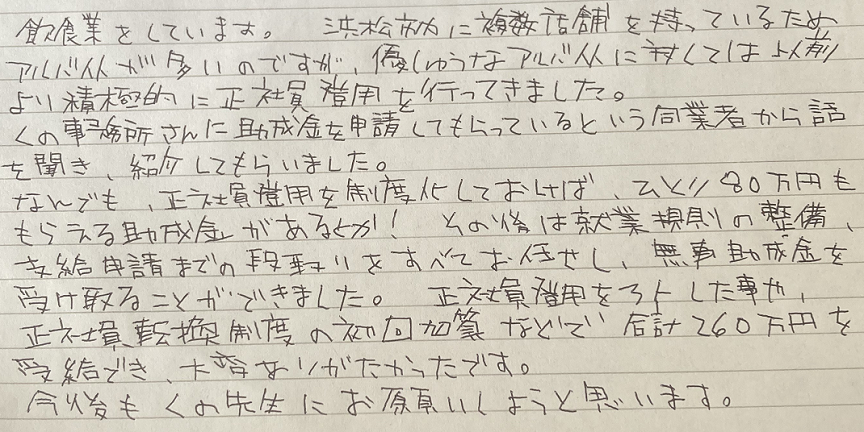 飲食業をしています。 浜松市内に複数店舗を持っているため
アルバイトが多いのですが、優しゅうなアルバイトに対しては以前
より積極的に正社員登用を行ってきました。
くの事務所さんに助成金を申請してもらっているという同業者から話
を聞き、紹介してもらいました。
なんでも、正社員登用を制度化しておけば、ひとり80万円も
もらえる助成金があるとか! その後は就業規則の整備、
支給申請までの段取りをすべてお任せし、無事助成金を
受け取ることができました。 正社員登用を3人した事や、
正社員転換制度の初回加算などで合計260万円を
受給でき、大変ありがたかったです。
今後もくの先生にお願いしようと思います。